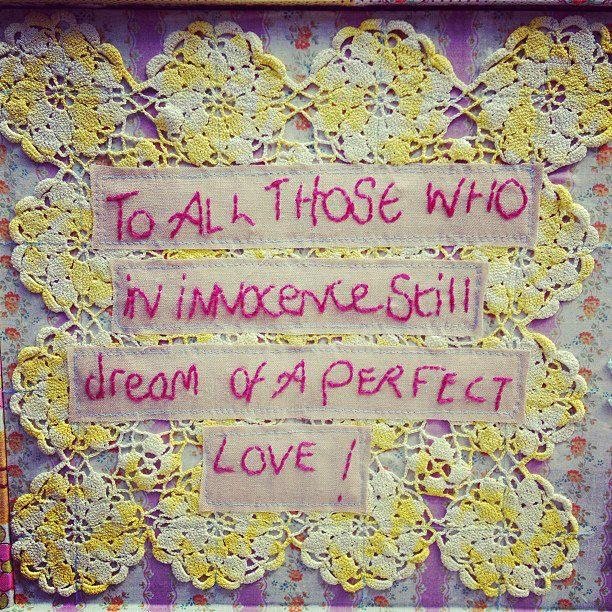 To ALL THOSE WHO
in innocence Still
dream OF A PERFECT
LOVE!